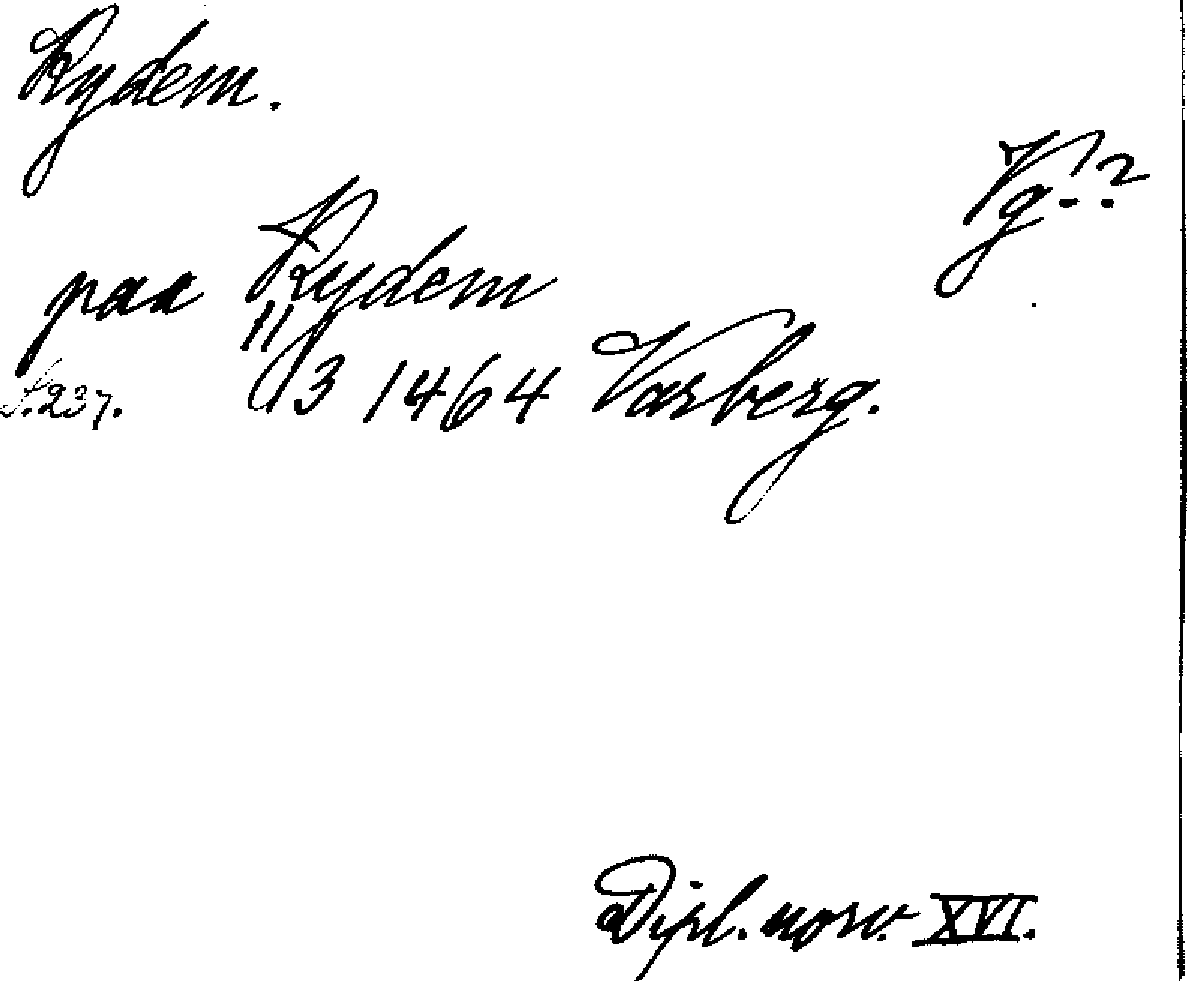 Rydem.
Vg!?
paa Rydem
S.237. 11/3 1464 Varberg.
Dipl. norv. XVI.